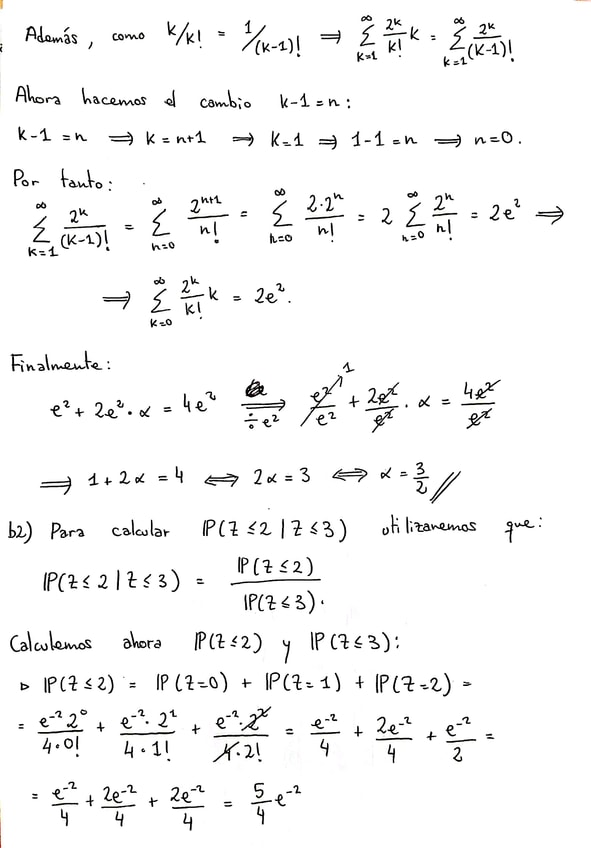 Además, como k/k! = 1/(k-1)! ⟹ ∑_{k=1}^{∞} 2^k/k! k = ∑_{k=1}^{∞} 2^k/(k-1)!
Ahora hacemos el cambio k-1 = n:
k-1 = n ⟹ k = n+1 ⟹ k=1 ⟹ 1-1 = n ⟹ n=0.
Por tanto:
∑_{k=1}^{∞} 2^k/(k-1)! = ∑_{n=0}^{∞} 2^{n+1}/n! = ∑_{n=0}^{∞} 2·2^n/n! = 2 ∑_{n=0}^{∞} 2^n/n! = 2e² ⟹
⟹ ∑_{k=0}^{∞} 2^k/k! k = 2e².
Finalmente:
e² + 2e²·α = 4e² ⟹ ÷e² e²/e² 1 + 2e²/e² · α = 4e²/e²
⟹ 1+2α = 4 ⟺ 2α = 3 ⟺ α = 3/2 //
b2) Para calcular ℙ(Z ≤ 2 | Z ≤ 3) utilizaremos que:
ℙ(Z ≤ 2 | Z ≤ 3) = ℙ(Z ≤ 2)/ℙ(Z ≤ 3).
Calculemos ahora ℙ(Z ≤ 2) y ℙ(Z ≤ 3):
▹ ℙ(Z ≤ 2) = ℙ(Z=0) + ℙ(Z=1) + ℙ(Z=2) =
= e⁻² 2⁰/4·0! + e⁻²·2¹/4·1! + e⁻²·2²/4·2! = e⁻²/4 + 2e⁻²/4 + e⁻²/2 =
= e⁻²/4 + 2e⁻²/4 + 2e⁻²/4 = 5/4 e⁻²